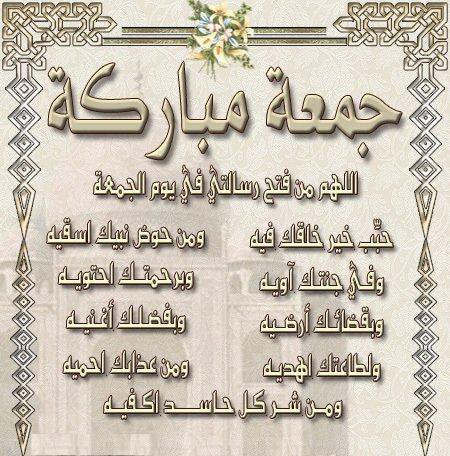 جمعة مباركة
اللهم من فتح رسالتي في يوم الجمعة
حبّب خير خلقك فيه ومن حوض نبيك اسقيه
وفي جنتك آويه وبرحمتك احتويه
وبقضائك أرضيه وبفضلك أغنيه
ولطاعتك اهديه ومن عذابك احميه
ومن شر كل حاسد اكفيه